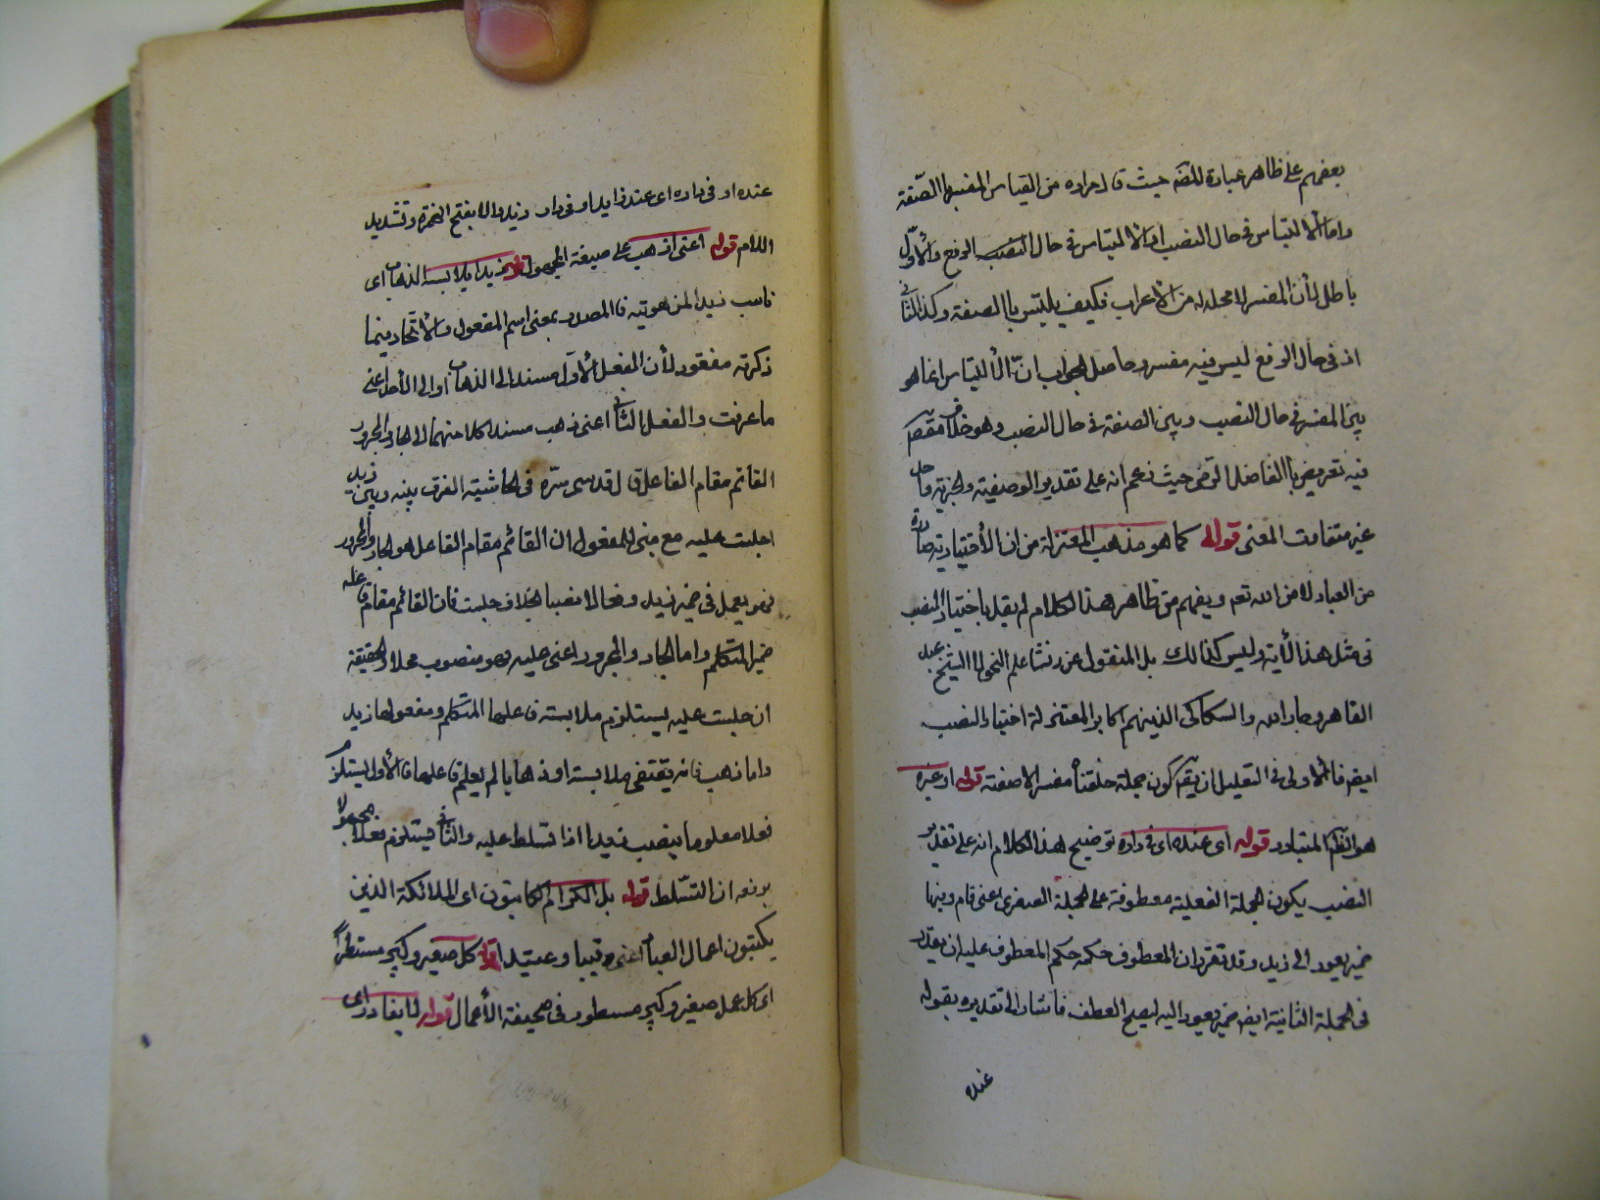 بعضهم على ظاهر عبارة المصنف حيث قال مراده من القياس المفسر بالصفة
واما الالتباس في حال النصب اذ الالتباس في حال النصب الرفع والأول
باطل لأن المفسر لا محل له من الاعراب فكيف يلتبس بالصفة وكذا الثاني
اذ في حال الرفع ليس فيه مفسر وحاصل الجواب انّ الألتباس انما هو
بين المفسر في حال النصب وبين الصفة في حال النصب وهو خلاف مقصم
فيه تعريض بالفاضل الرضى حيث زعم انه على تقدير الوصفية والخبرية حاصل
غير متفاوت المعنى قوله كما هو مذهب المعتزلة من ان الأختيارية صادرة
من العباد لا من الله تعم ويفهم من ظاهر هذا الكلام لم يقل باختيار النصب
في مثل هذا الأية وليس كذالك بل المنقول عن نشا علم النحو الشيخ عبد
القاهر وجار الله والسكاكى الذينهم اكابر المعتزلة اختيار النصب
ايضم فالاولى في التعليل ان يقم كون جملة خلقناه مفسر الا صفة قوله او غيره
هو الظم المتبادر قوله اى عنده اى في داره توضيح هذا الكلام انه على تقدير
النصب يكون الجملة الفعلية معطوفة على الجملة الصغرى اعنى قام وفيها
ضمير يعود الى زيد وقد تقرر ان المعطوف حكمه حكم المعطوف عليه ان يقدر
في الجملة الثانية ايضم ضمير يعود اليه ليصلح العطف فاشار الى تقديره بقوله
عنده
عنده او في داره اى عند زايد او في دار زيد والا بفتح الهمزة وتشديد
اللام قوله اعنى اذهب على صيغة المجهول قوله زيدا يلابسه الذهاب اى
ناسب زيدا المذهوبية فالمصدر بمعنى اسم المفعول والأتحاد فيما
ذكرته مفقود لأن الفعل الأول مسند الى الذهاب او الى الأحد اعنى
ما عرفت والفعل الثاني اعنى ذهب مسند كلا منهما الى الجار والمجرور
القائم مقام الفاعل قال قدسى سرّه في الحاشية الفرق بينه وبين زيد
اجلست عليه مع مبنى للمفعول ان القائم مقام الفاعل هو الجار والمجرور
فهو يعمل في ضمير زيد رفعا لا نصبا بخلاف جلست فان القائم مقام فاعله
ضمير المتكلم واما الجار والمجرور اعنى عليه فهو منصوب محلا والحقيقة
ان جلست عليه يستلزم ملابسة فاعلها المتكلم ومفعولها زيد
واما ذهب فانه يقتضى ملابسة اذهابا لم يعلم فاعلها فالأول يستلزم
فعلا معلوما ينصب زيدا اذا تسلط عليه والثاني يستلزم فعلا مجهولا
يرفعه ان التسلط قوله بل الكرام الكاتبون اى الملائكة الذين
يكتبون اعمال العباد اعنى رقيبا وعتيدا قوله كل صغير وكبير مستطرا
اى كل عمل صغير وكبير مسطور في صحيفة الأعمال قوله لا يغادر اى